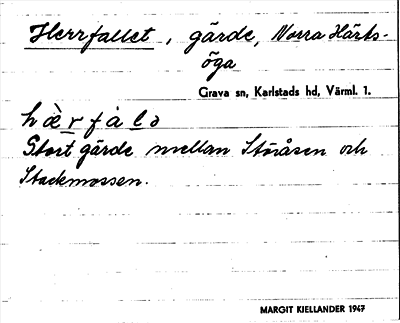 Herrfallet, gärde, Norra Härts-
öga
Grava sn, Karlstads hd, Värml. 1.
hæ̀rfàlə
Stort gärde mellan Störåsen och
Stackmossen.
MARGIT KIELLANDER 1947